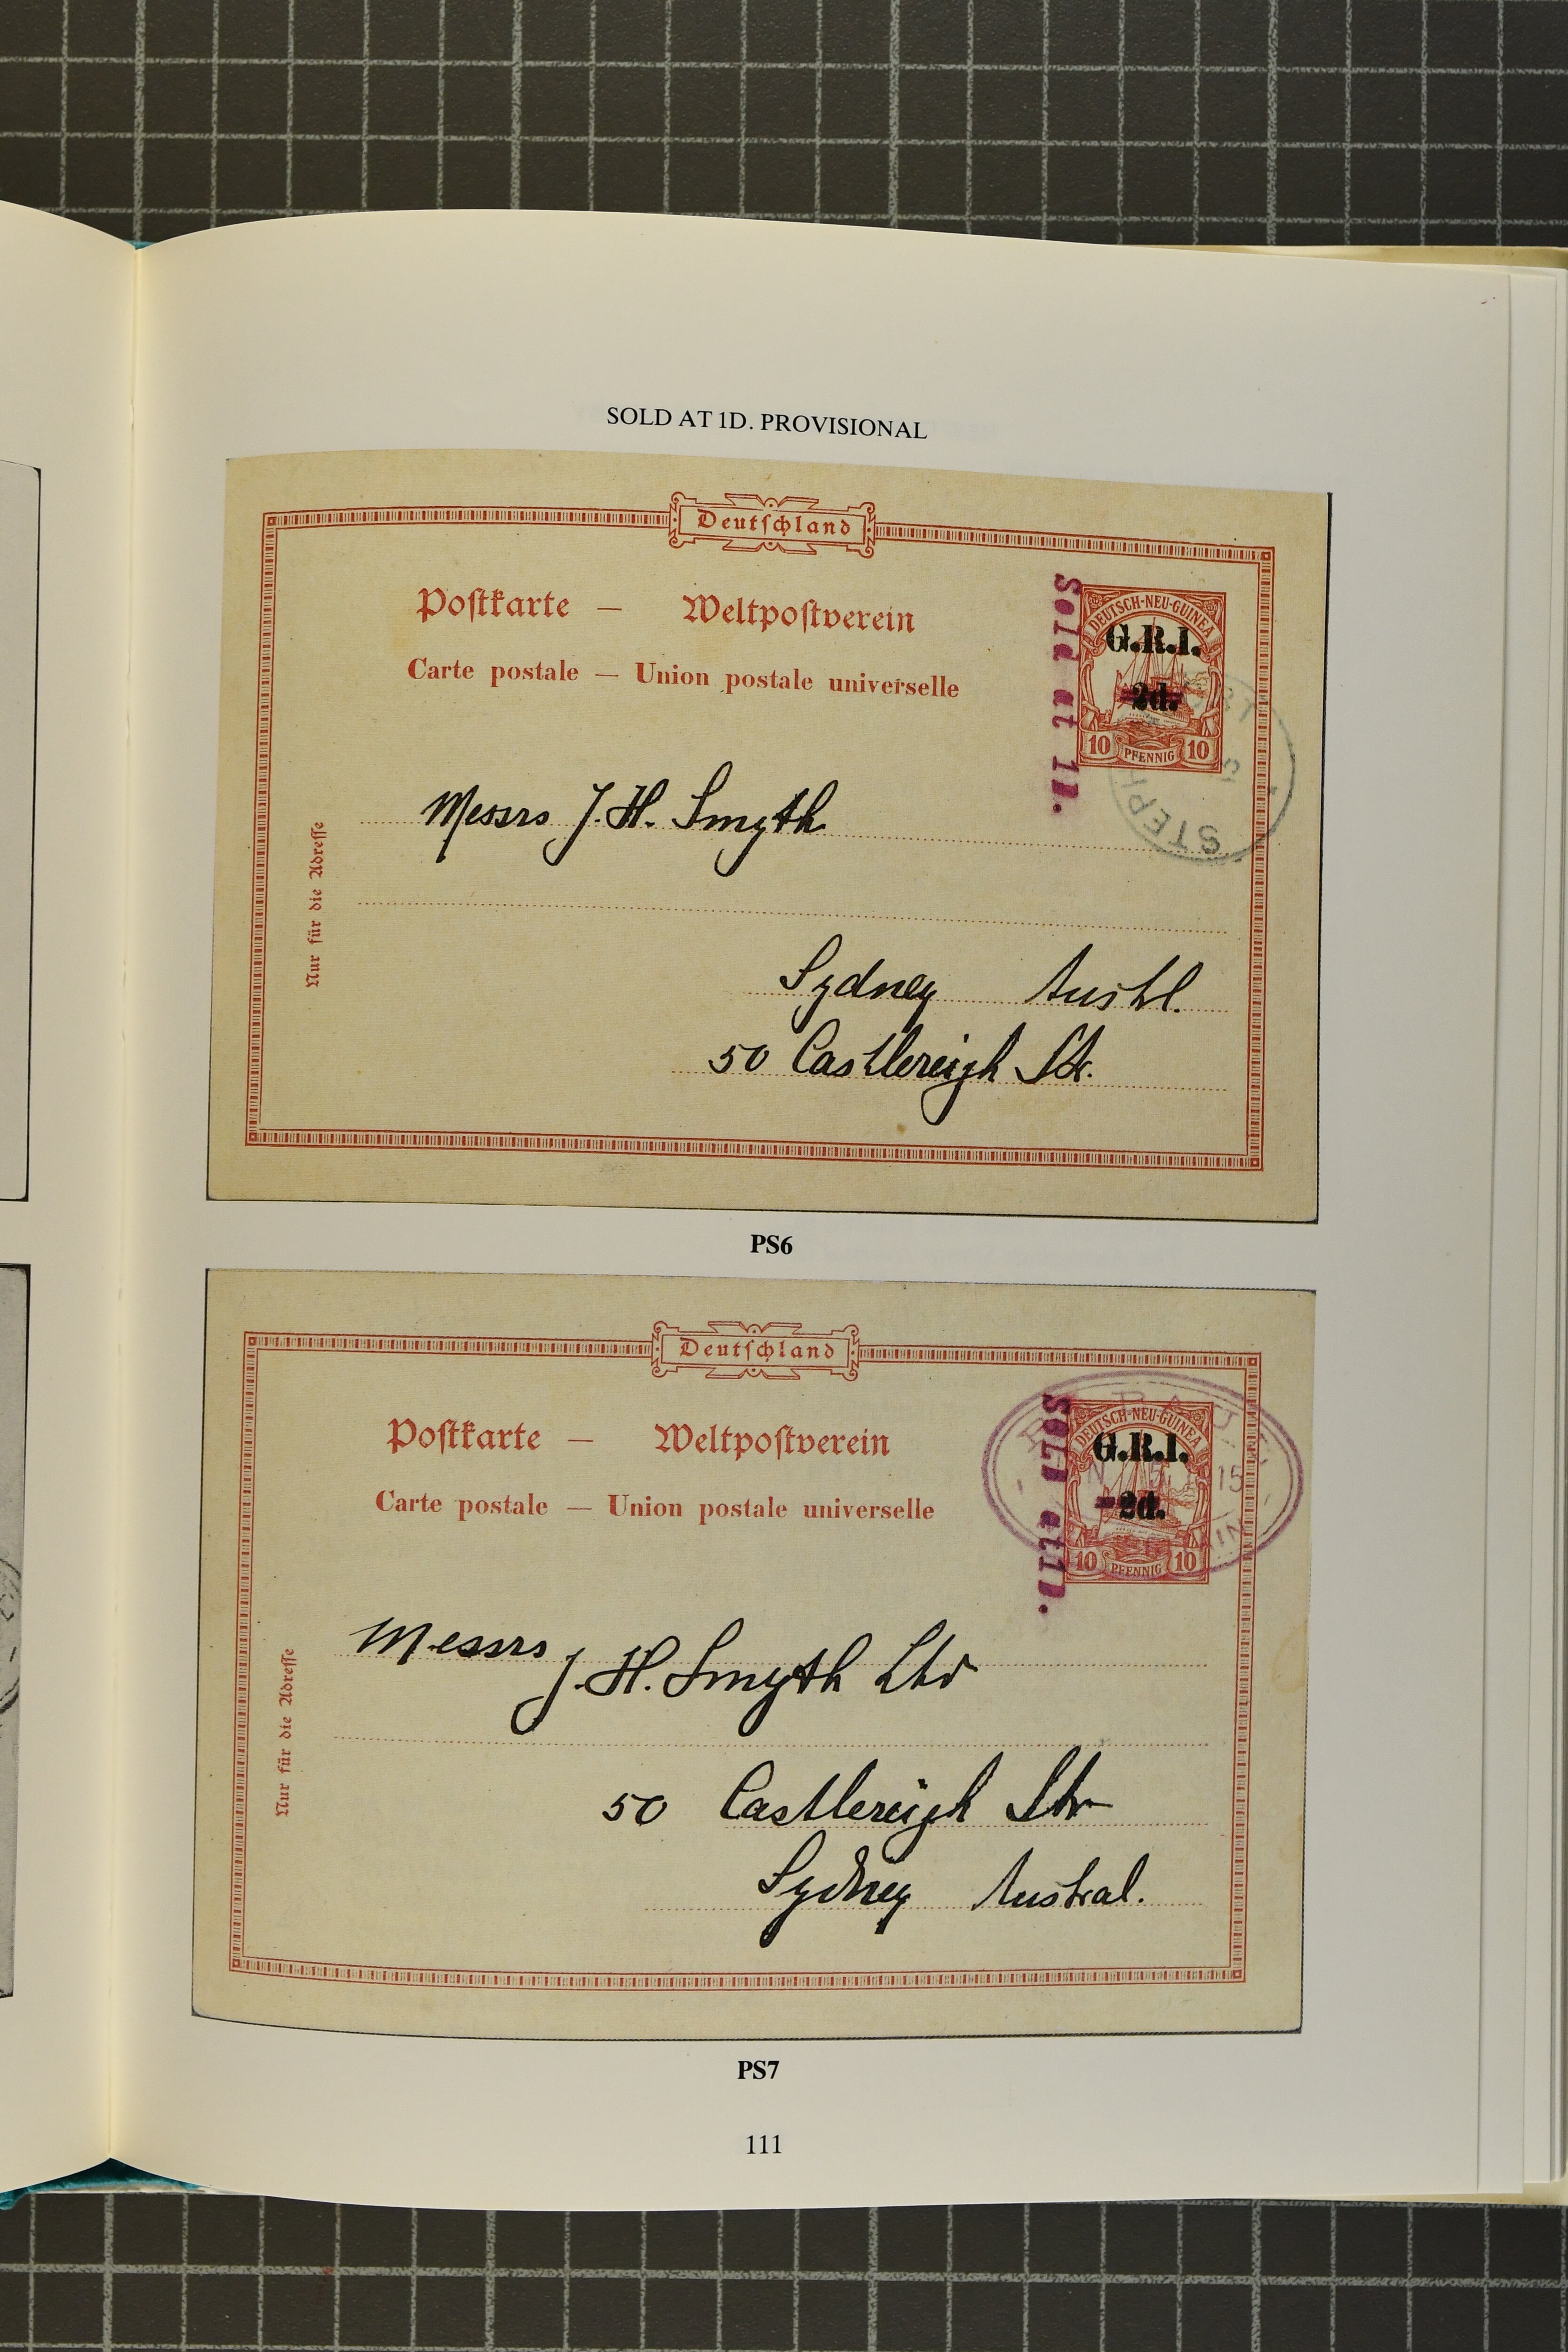 SOLD AT 1D. PROVISIONAL
Deutschland
Postkarte — Weltpostverein
Carte postale — Union postale universelle
Sold at 1D.
DEUTSCH-NEU-GUINEA
G.R.I.
2d.
10 PFENNIG 10
STEPH ORT
Messrs J. H. Smyth
Nur für die Adresse
Sydney Austrl.
50 Castlereigh Str.
PS6
Deutschland
Postkarte — Weltpostverein
Carte postale — Union postale universelle
SOLD at 1D.
DEUTSCH-NEU-GUINEA
G.R.I.
2d.
10 PFENNIG 10
15
Messrs
J. H. Smyth Ltd
Nur für die Adresse
50 Castlereigh Str
Sydney Austral.
PS7
111